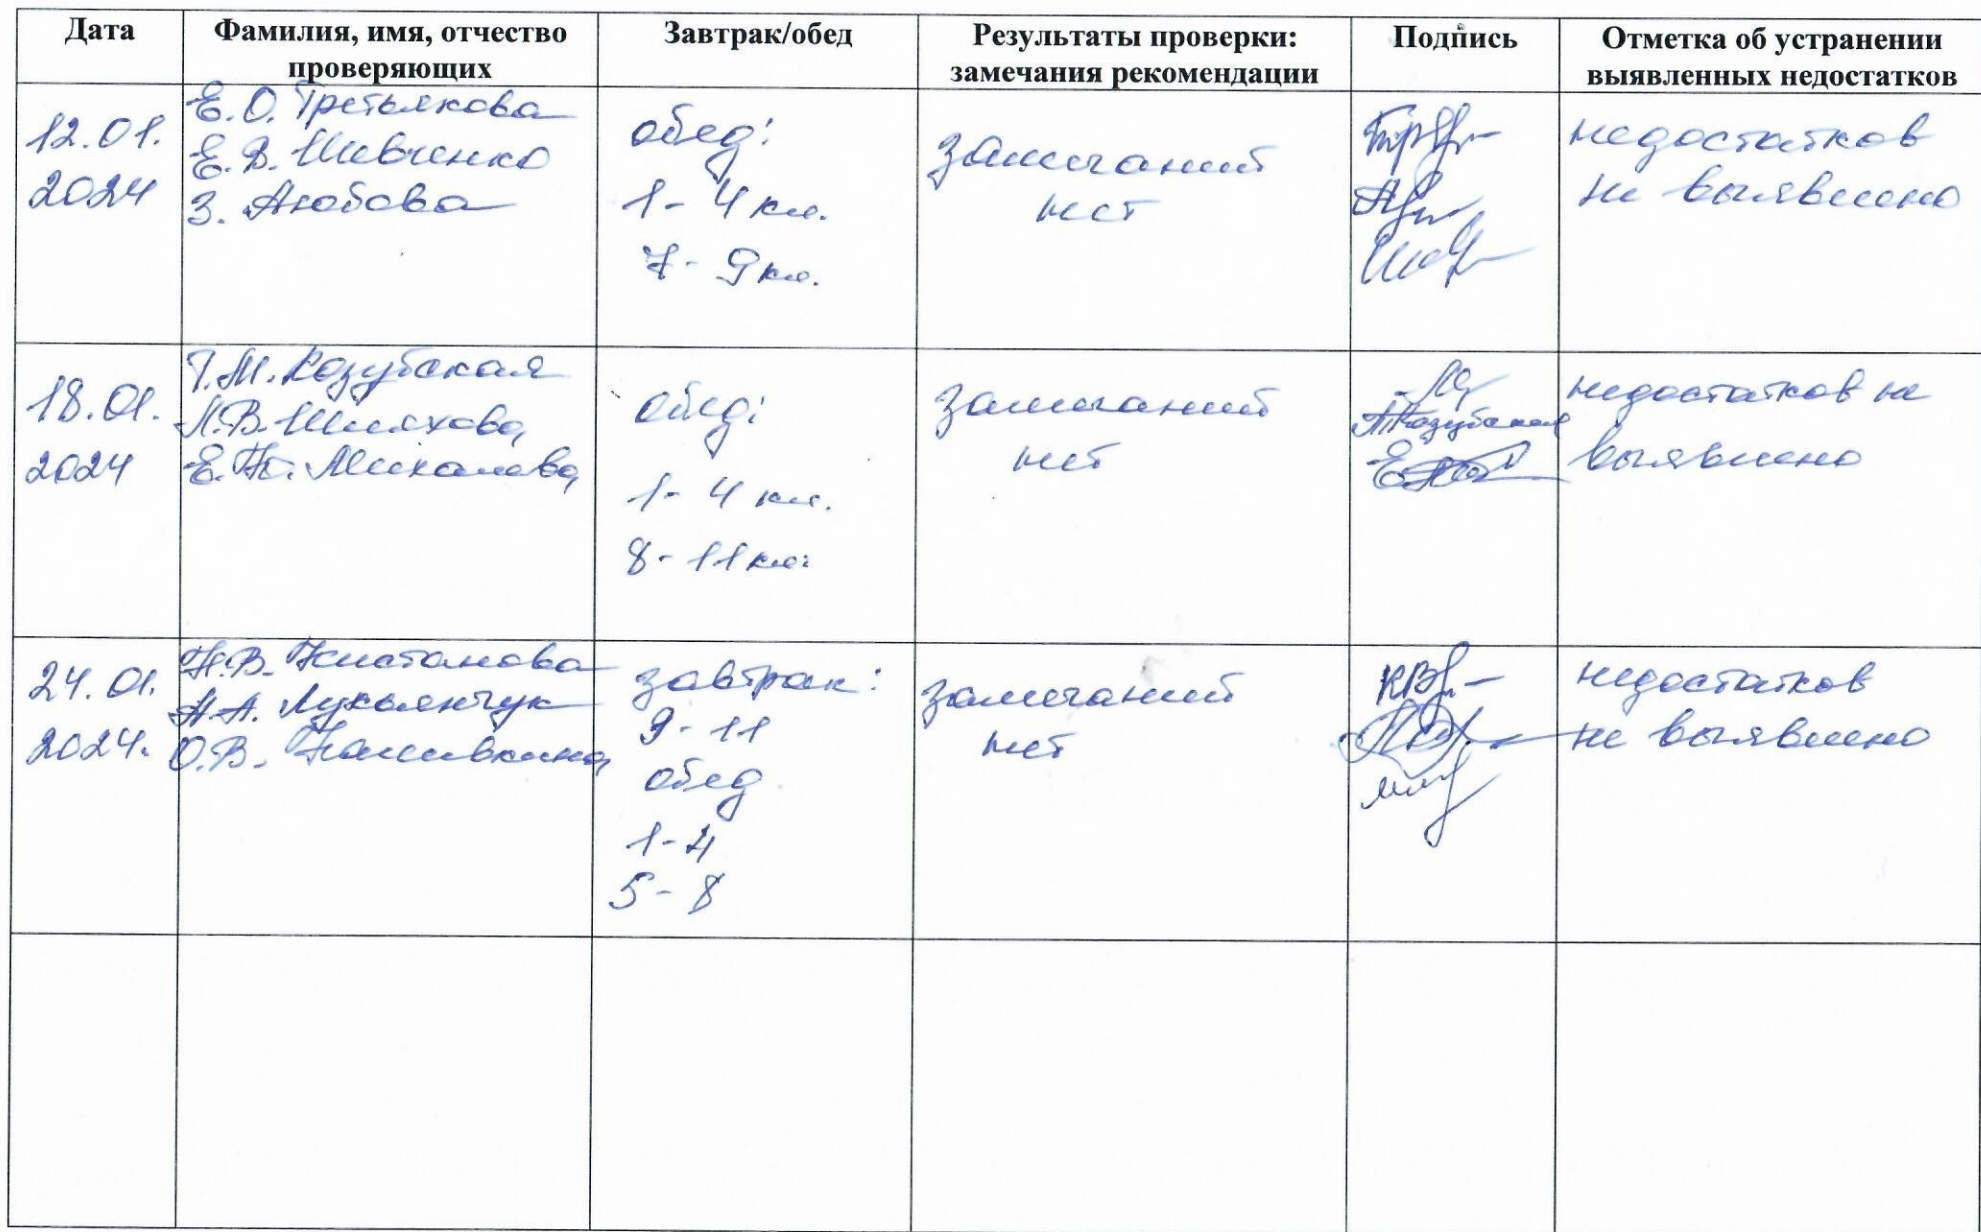 Дата
Фамилия, имя, отчество
проверяющих
Завтрак/обед
Результаты проверки:
замечания рекомендации
Подпись
Отметка об устранении
выявленных недостатков
12.01.
2024
Е.О. Третьякова
Е.В. Шевченко
З. Аюбова
обед:
1-4 кл.
7-9 кл.
замечаний
нет
недостатков
не выявлено
18.01.
2024
Т.М. Козубская
Л.В. Шляхова
Е. Михалева
обед:
1-4 кл.
8-11 кл.
замечаний
нет
Козубская
недостатков не
выявлено
24.01.
2024.
Н.В.
А.А. Лукьянчук
О.В.
завтрак:
9-11
обед
1-4
5-8
замечаний
нет
недостатков
не выявлено